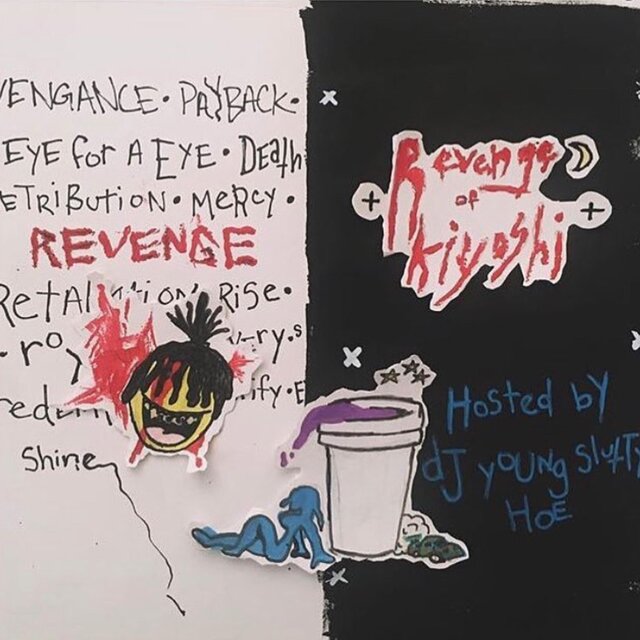 VENGANCE • PAYBACK •
EYE for A EYE • Death
ETRIBUTION • MERCY •
REVENGE
RetAl RiSe •
ry.s
ify • E
Shine
Revenge
of
kiyoshi
Hosted bY
dJ YOUNg SlutTy
HoE